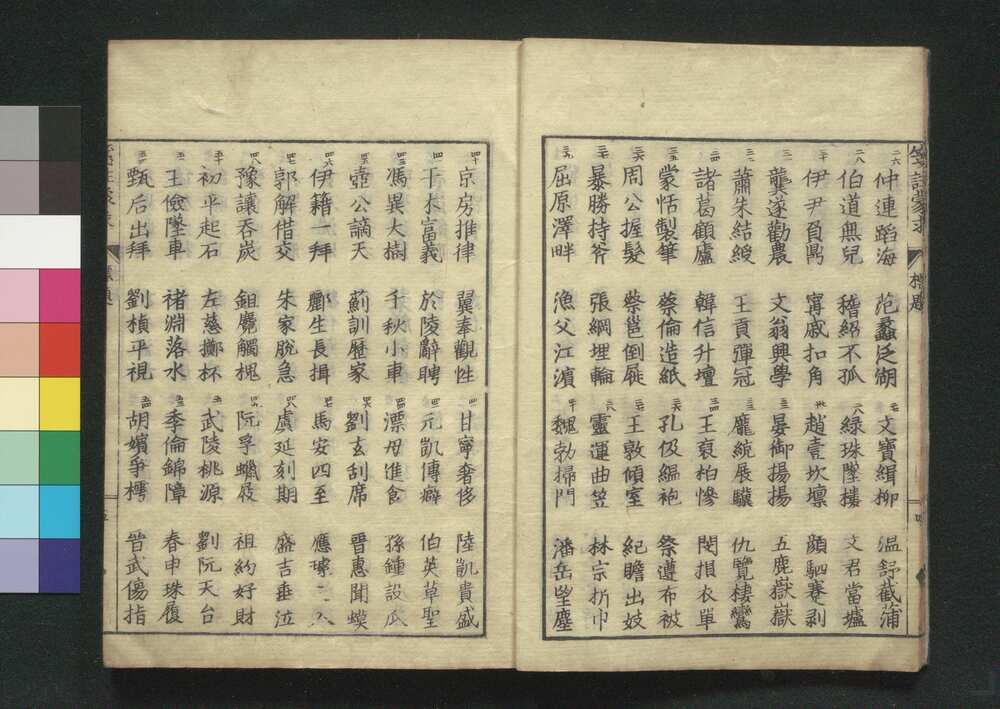 仲連蹈海 范蠡泛湖 文寶緝柳 温舒截蒲
伯道無兒 嵇紹不孤 綠珠墜樓 文君當壚
伊尹負鼎 甯戚扣角 趙壹坎壈 顔駟蹇剥
龔遂勸農 文翁興學 晏御揚揚 五鹿嶽嶽
蕭朱結綬 王貢彈冠 龐統展驥 仇覽棲鸞
諸葛顧廬 韓信升壇 王裒柏慘 閔損衣單
蒙恬製筆 蔡倫造紙 孔伋緼袍 祭遵布被
周公握髮 蔡邕倒屣 王敦傾室 紀瞻出妓
暴勝持斧 張綱埋輪 靈運曲笠 林宗折巾
屈原澤畔 漁父江濱 魏勃掃門 潘岳望塵
京房推律 翼奉觀性 甘寧奢侈 陸凱貴盛
干木富義 於陵辭聘 元凱傳癖 伯英草聖
馮異大樹 千秋小車 漂母進食 孫鍾設瓜
壺公謫天 薊訓歷家 劉玄刮席 晋惠聞蟆
伊籍一拜 酈生長揖 馬安四至 應璩三入
郭解借交 朱家脱急 虞延刻期 盛吉垂泣
豫讓吞炭 鉏麑觸槐 阮孚蠟屐 祖約好財
初平起石 左慈擲杯 武陵桃源 劉阮天台
王儉墜車 褚淵落水 季倫錦障 春申珠履
甄后出拜 劉楨平視 胡嬪爭樗 晉武傷指